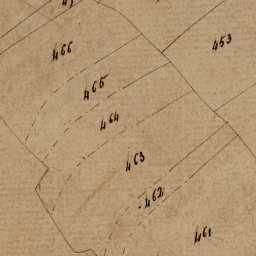 466
453
465
464
463
462
461